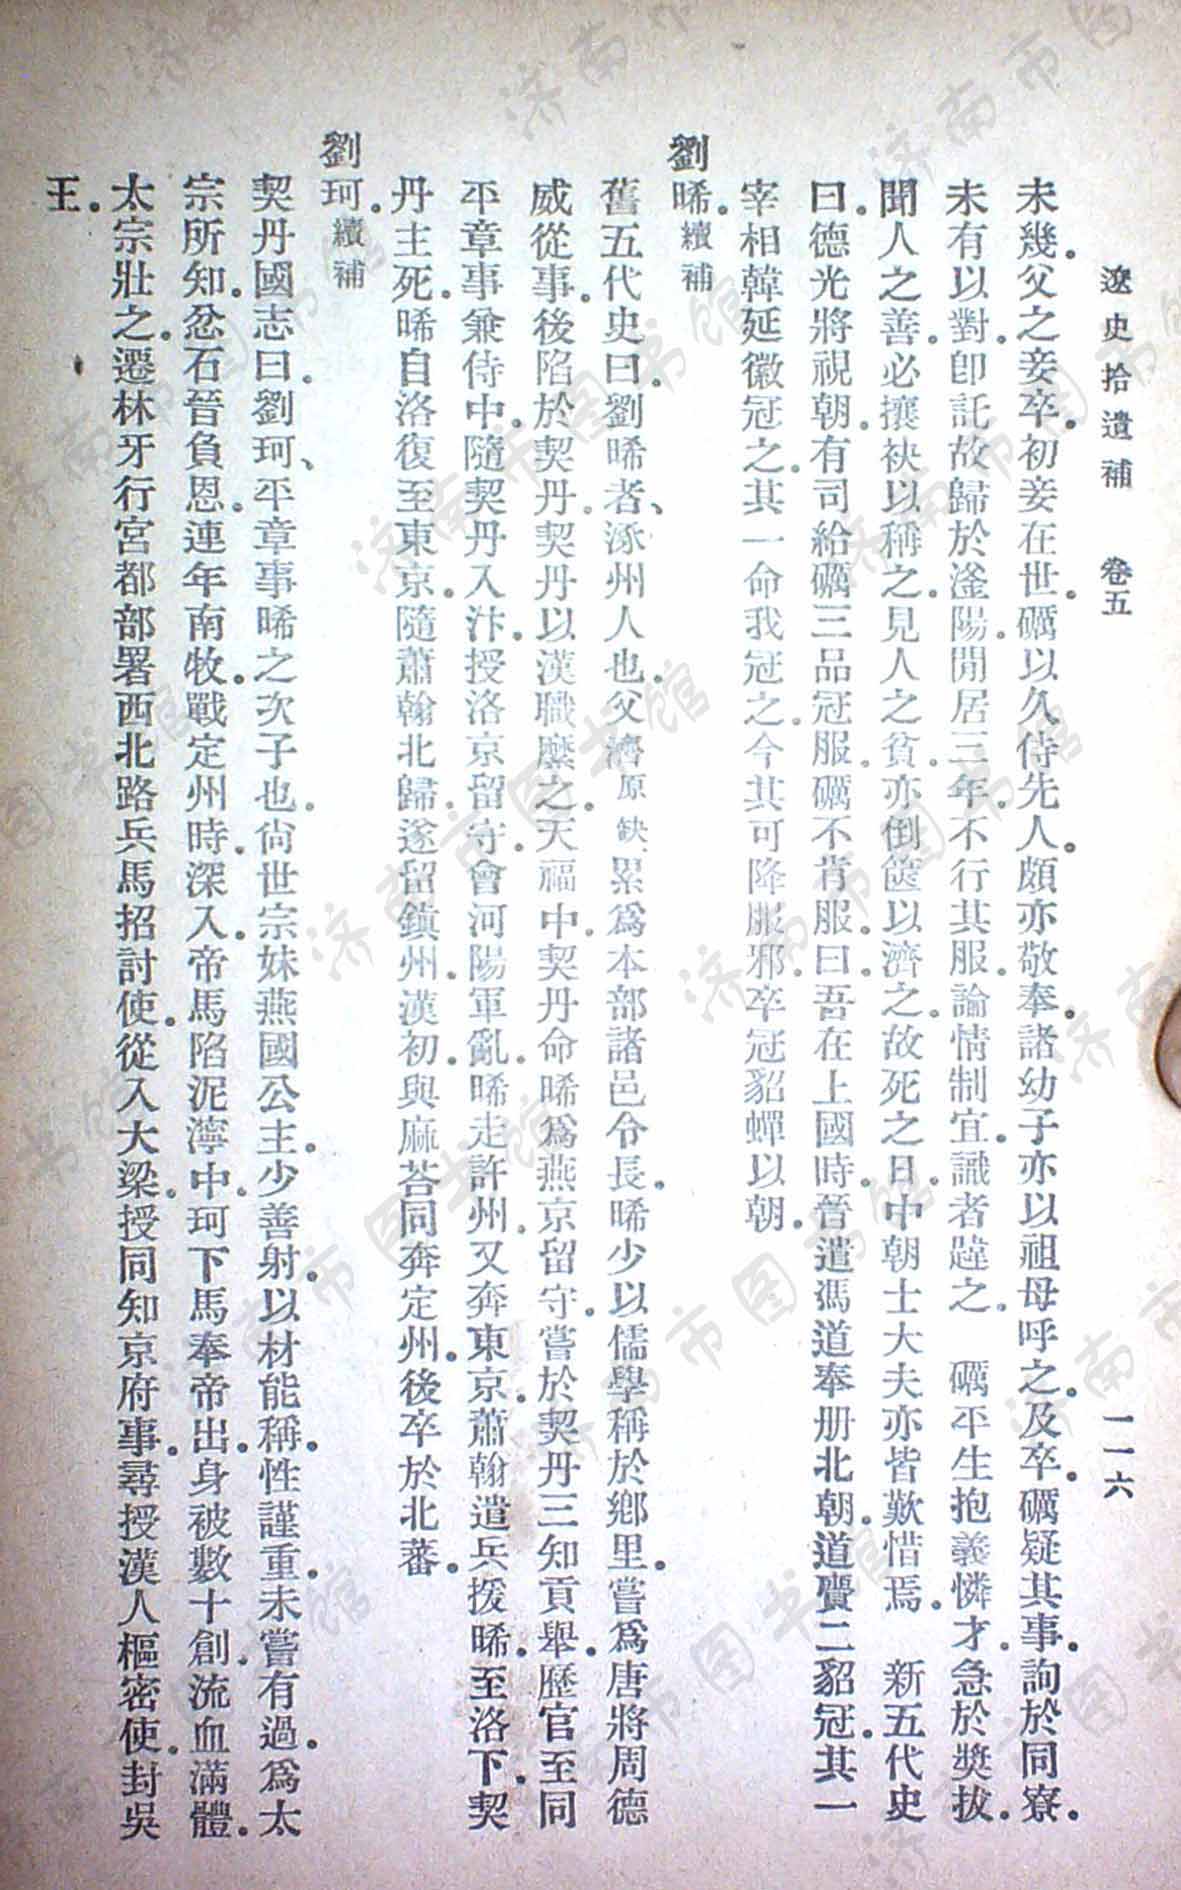 遼史拾遺補　卷五　一一六
未幾。父之妾卒。初妾在世。礪以久侍先人。頗亦敬奉。諸幼子亦以祖母呼之。及卒。礪疑其事。詢於同寮。
未有以對。卽託故歸於滏陽。閒居三年。不行其服。論情制宜。識者韙之。　礪平生抱義憐才。急於奬拔。
聞人之善。必攘袂以稱之。見人之貧。亦倒篋以濟之。故死之日。中朝士大夫亦皆歎惜焉。　新五代史
曰。德光將視朝。有司給礪三品冠服。礪不肯服。曰。吾在上國時。晉遣馮道奉册北朝。道賷二貂冠。其一
宰相韓延徽冠之。其一命我冠之。今其可降服邪。卒冠貂蟬以朝。
劉晞。續補
舊五代史曰。劉晞者、涿州人也。父濟原缺。累爲本部諸邑令長。晞少以儒學稱於鄕里。嘗爲唐將周德
威從事。後陷於契丹。契丹以漢職縻之。天福中。契丹命晞爲燕京留守。嘗於契丹三知貢舉。歷官至同
平章事兼侍中。隨契丹入汴。授洛京留守。會河陽軍亂。晞走許州。又奔東京。蕭翰遣兵援晞。至洛下。契
丹主死。晞自洛復至東京。隨蕭翰北歸。遂留鎮州。漢初。與麻荅同奔定州。後卒於北蕃。
劉珂。續補
契丹國志曰。劉珂、平章事晞之次子也。尙世宗妹燕國公主。少善射。以材能稱。性謹重。未嘗有過。爲太
宗所知。忿石晉負恩。連年南牧。戰定州時。深入。帝馬陷泥濘中。珂下馬奉帝出。身被數十創。流血滿體。
太宗壯之。遷林牙行宮都部署西北路兵馬招討使。從入大梁。授同知京府事。尋授漢人樞密使。封吳
王。
济南市图书馆